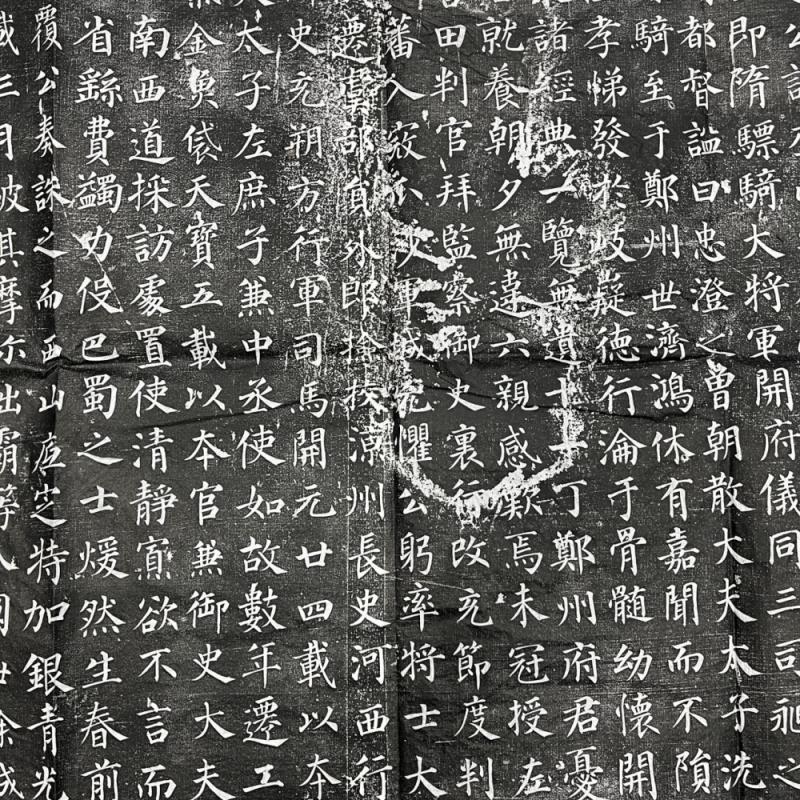 即隋驃騎大將軍開府儀同三司昶之
都督謚曰忠澄之曾朝散大夫太子洗
騎至于鄭州世濟鴻休有嘉聞而不隕
孝悌發於岐嶷德行淪于骨髓幼懷開
諸經典一覽無遺十一丁鄭州府君憂
就養朝夕無違六親感歎焉未冠授左
田判官拜監察御史裏行改充節度判
蕃入寇軍城兇懼公躬率將士大
遷虞部員外郎檢校涼州長史河西行
史充朔方行軍司馬開元廿四載以本
太子左庶子兼中丞使如故數年遷工
金魚袋天寶五載以本官兼御史大夫
南西道採訪處置使清靜寡欲不言而
省繇費蠲力役巴蜀之士煖然生春前
覆公奏誅之而西山底定特加銀青光
三月破其摩尔咄霸等八國